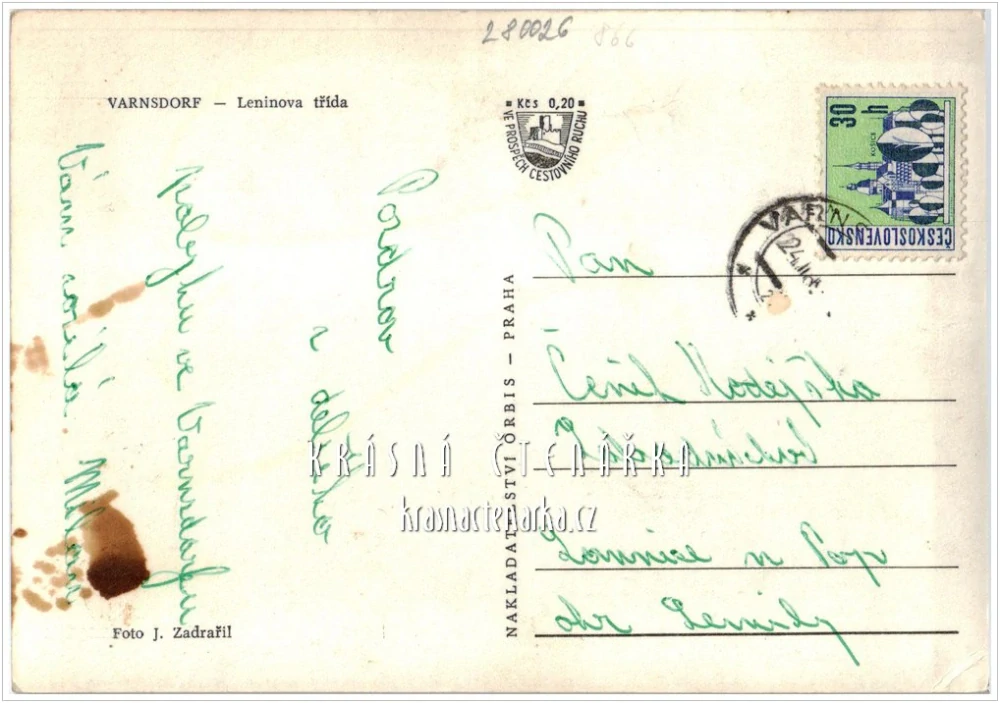 280026 866
VARNSDORF — Leninova třída
Kčs 0,20
VE PROSPĚCH CESTOVNÍHO RUCHU
30 h
KOŠICE
ČESKOSLOVENSKO
VARN
24.
Pozdrav
z delšího
pobytu ve Varnsdorfu
Vám zasílá Milan
Pan
Čeněk Kodejška
Lomnice n Pop
okr Semily
NAKLADATELSTVÍ ORBIS — PRAHA
Foto J. Zadrařil
KRÁSNÁ ČTENÁŘKA
krasnactenarka.cz